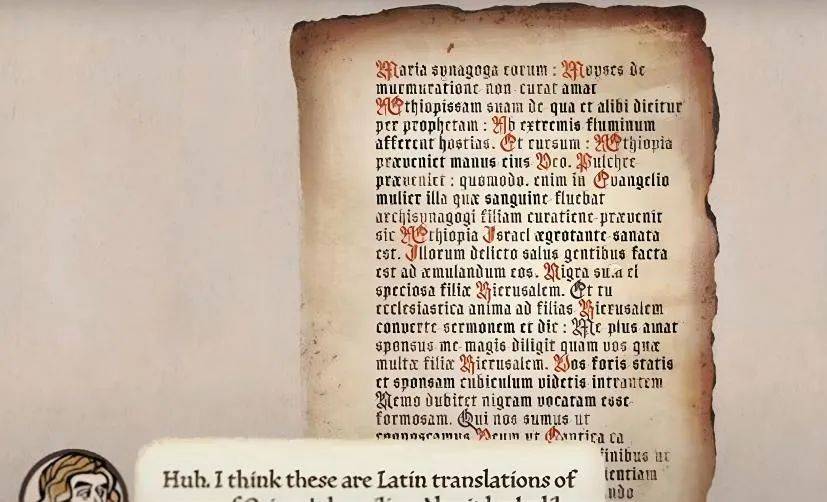 Maria synagoga eorum : Moyses de
murmuratione non curat amat
Æthiopissam suam de qua et alibi dicitur
per prophetam : Ab extremis fluminum
afferent hostias. Et rursum : Æthiopia
præveniet manus eius Deo. Pulchre
præveniet : quomodo. enim in Evangelio
mulier illa quæ sanguine fluebat
archisynagogi filiam curatione prævenit
sic Æthiopia Israel ægrotante sanata
est. Illorum delicto salus gentibus facta
est ad æmulandum eos. Nigra sum et
speciosa filiæ Hierusalem. Et tu
ecclesiastica anima ad filias Hierusalem
converte sermonem et dic : Me plus amat
sponsus me magis diligit quam vos quæ
multæ filiæ Hierusalem. Vos foris statis
et sponsam cubiculum videtis intrantem
Nemo dubitet nigram vocatam esse
formosam. Qui nos sumus ut
cognoscamus Deum ut Cantica ca
finibus ut
entiam
ndo
Huh. I think these are Latin translations of